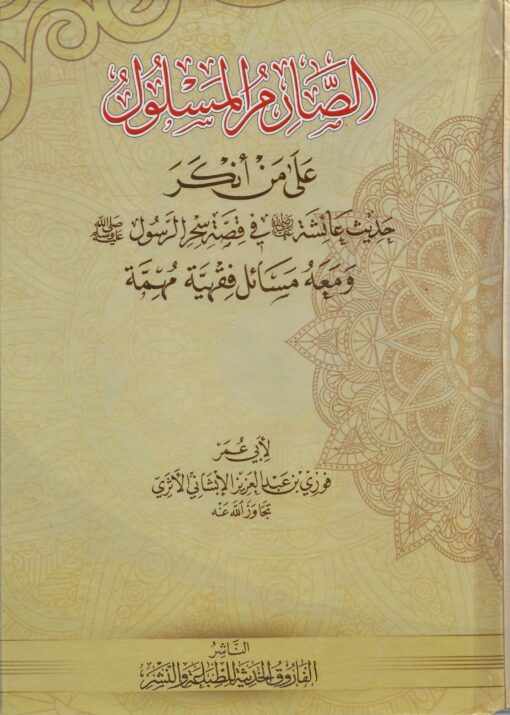 الصَّارِمُ المَسْلُولُ
عَلَى مَنْ أَنْكَرَ
حَدِيثَ عَائِشَةَ رضي الله عنها فِي قِصَّةِ سِحْرِ الرَّسُولِ ﷺ
وَمَعَهُ مَسَائِلُ فِقْهِيَّةٌ مُهِمَّةٌ
لِأَبِي عُمَرَ
فَوْزِي بْنِ عَبْدِ العَزِيزِ الإِبْشَانِي الأَثَرِي
تَجَاوَزَ اللهُ عَنْهُ
النَّاشِرُ
الفَارُوقُ الحَدِيثَةُ لِلطِّبَاعَةِ وَالنَّشْرِ